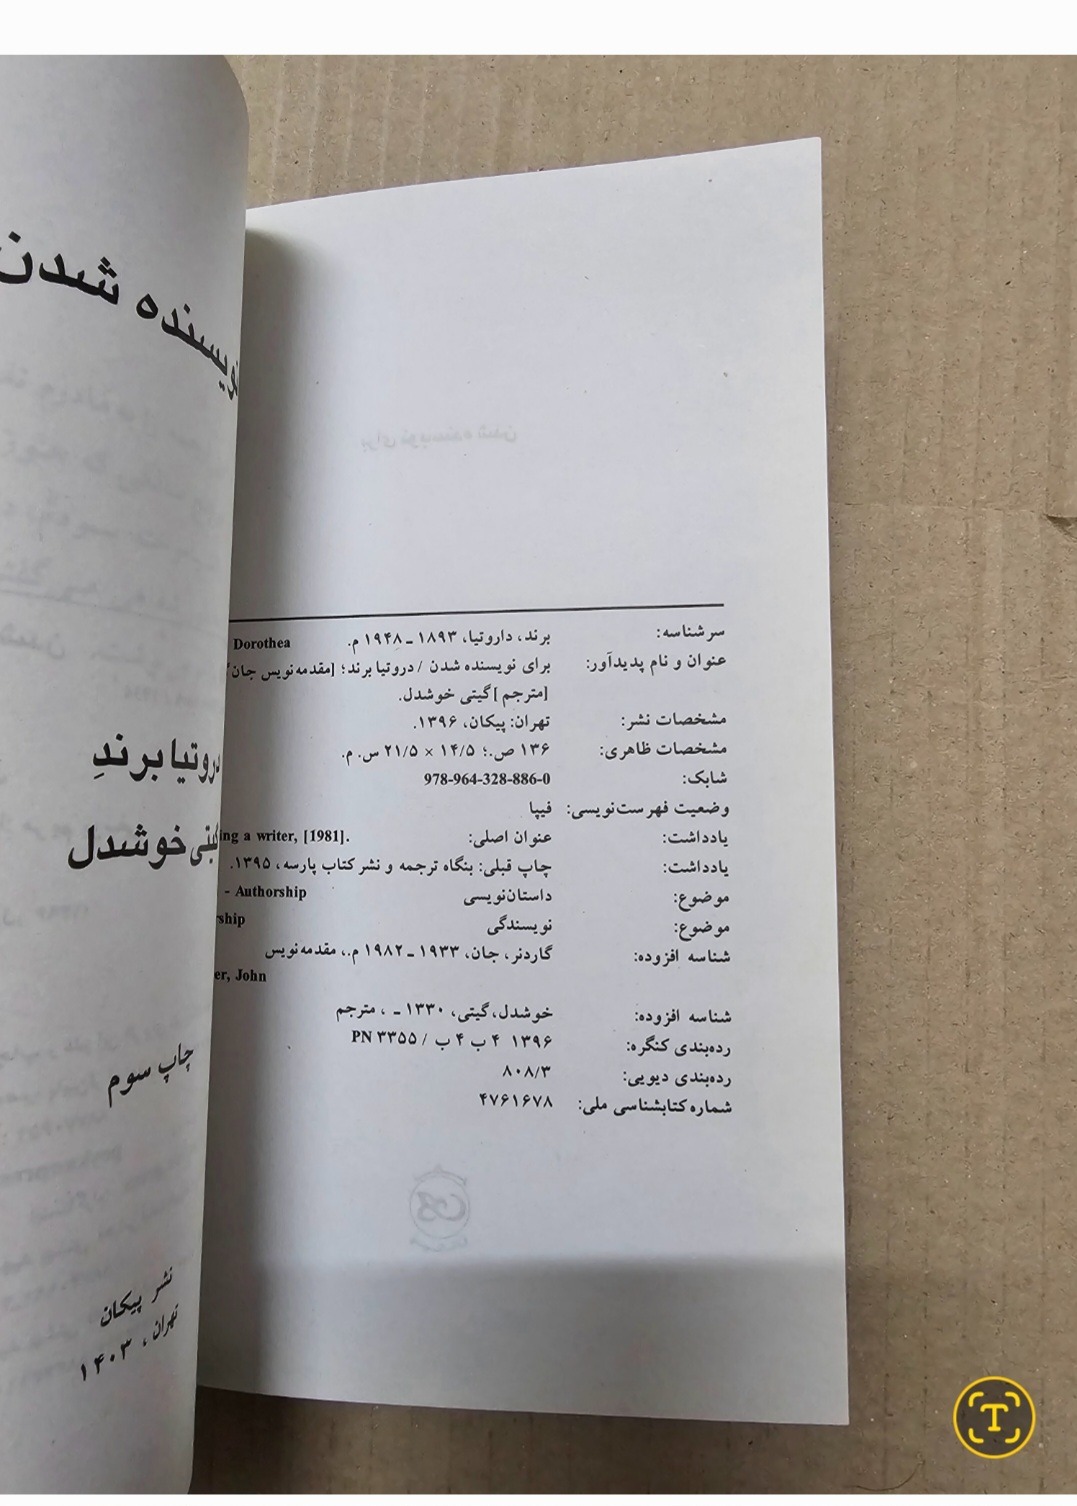 نویسنده شدن
دروتیا برندِ
گیتی خوشدل
چاپ سوم
نشر پیکان
تهران، ۱۴۰۳
سرشناسه: برند، داروتیا، ۱۸۹۳ ـ ۱۹۴۸ م. Dorothea
عنوان و نام پدیدآور: برای نویسنده شدن / دروتیا برند؛ [مقدمه‌نویس جان
[مترجم] گیتی خوشدل.
مشخصات نشر: تهران: پیکان، ۱۳۹۶.
مشخصات ظاهری: ۱۳۶ ص.؛ ۱۴/۵ × ۲۱/۵ س. م.
شابک: 978-964-328-886-0
وضعیت فهرست‌نویسی: فیپا
یادداشت: عنوان اصلی: ing a writer, [1981].
یادداشت: چاپ قبلی: بنگاه ترجمه و نشر کتاب پارسه، ۱۳۹۵.
موضوع: داستان‌نویسی - Authorship
موضوع: نویسندگی rship
شناسه افزوده: گاردنر، جان، ۱۹۳۳ ـ ۱۹۸۲ م.، مقدمه‌نویس
er, John
شناسه افزوده: خوشدل، گیتی، ۱۳۳۰ ـ ، مترجم
رده‌بندی کنگره: ۱۳۹۶ ۴ ب ۴ ب / PN ۳۳۵۵
رده‌بندی دیویی: ۸۰۸/۳
شماره کتابشناسی ملی: ۴۷۶۱۶۷۸